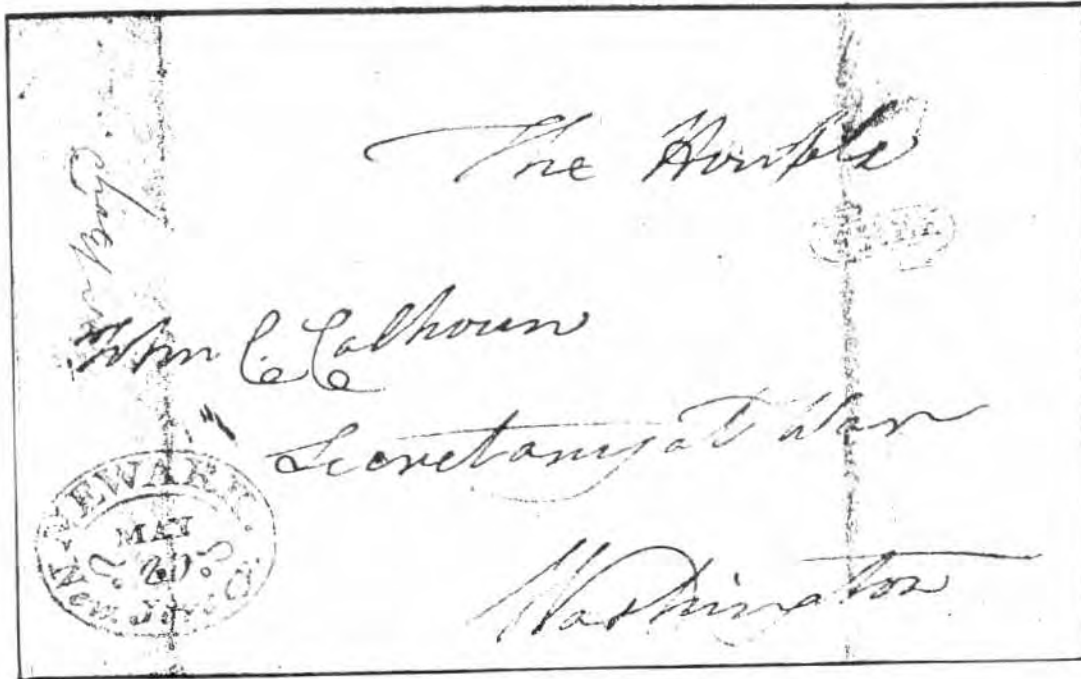 The Honble
John C. Calhoun
Secretary at War
Washington
NEWARK.
MAY
20
New Jersey